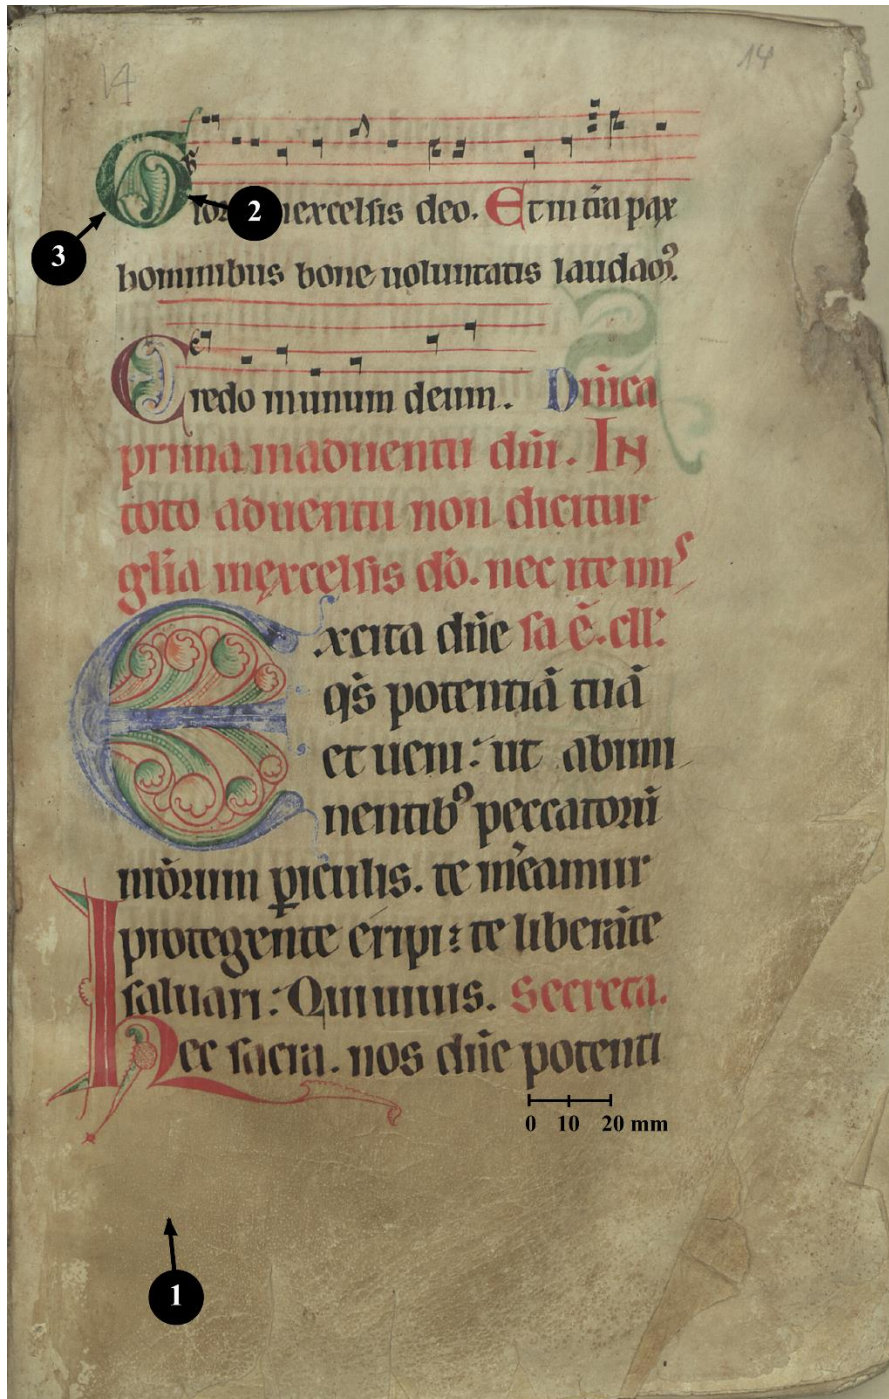 14
14
Gloria in excelsis deo. Et in t̄ra pax
hominibus bone uoluntatis laudam᷒.
Credo in unum deum. Dn̄ica
prima in aduentu dn̄i. In
toto aduentu non dicitur
gl̄ia in excelsis dō. nec ite mis
Excita dn̄e sa ē. cll'.
qs̄ potentiā tuā
et ueni: ut ab im
nentib᷒ peccatorū
nr̄orum ꝑiculis. te m̄eamur
protegente eripi: te liberāte
saluari: Qui uiuis. Secreta.
Hec sacra. nos dn̄e potenti
0 10 20 mm
1
2
3